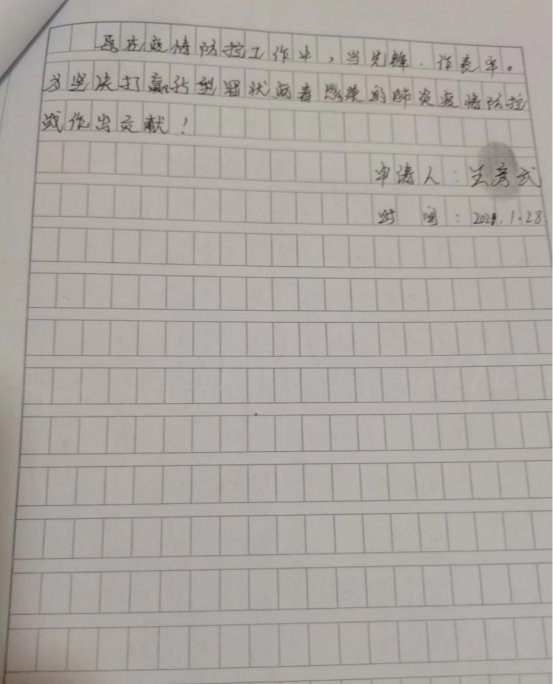 在疫情防控工作中，当先锋、作表率。
为坚决打赢新型冠状病毒感染的肺炎疫情防控
战作出贡献！
申请人：王彦武
时间：2021.1.28